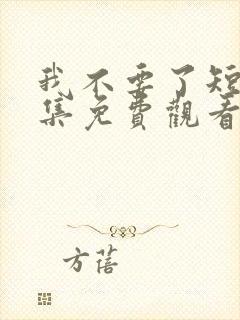 我不要了短
集免費觀看
方蓓